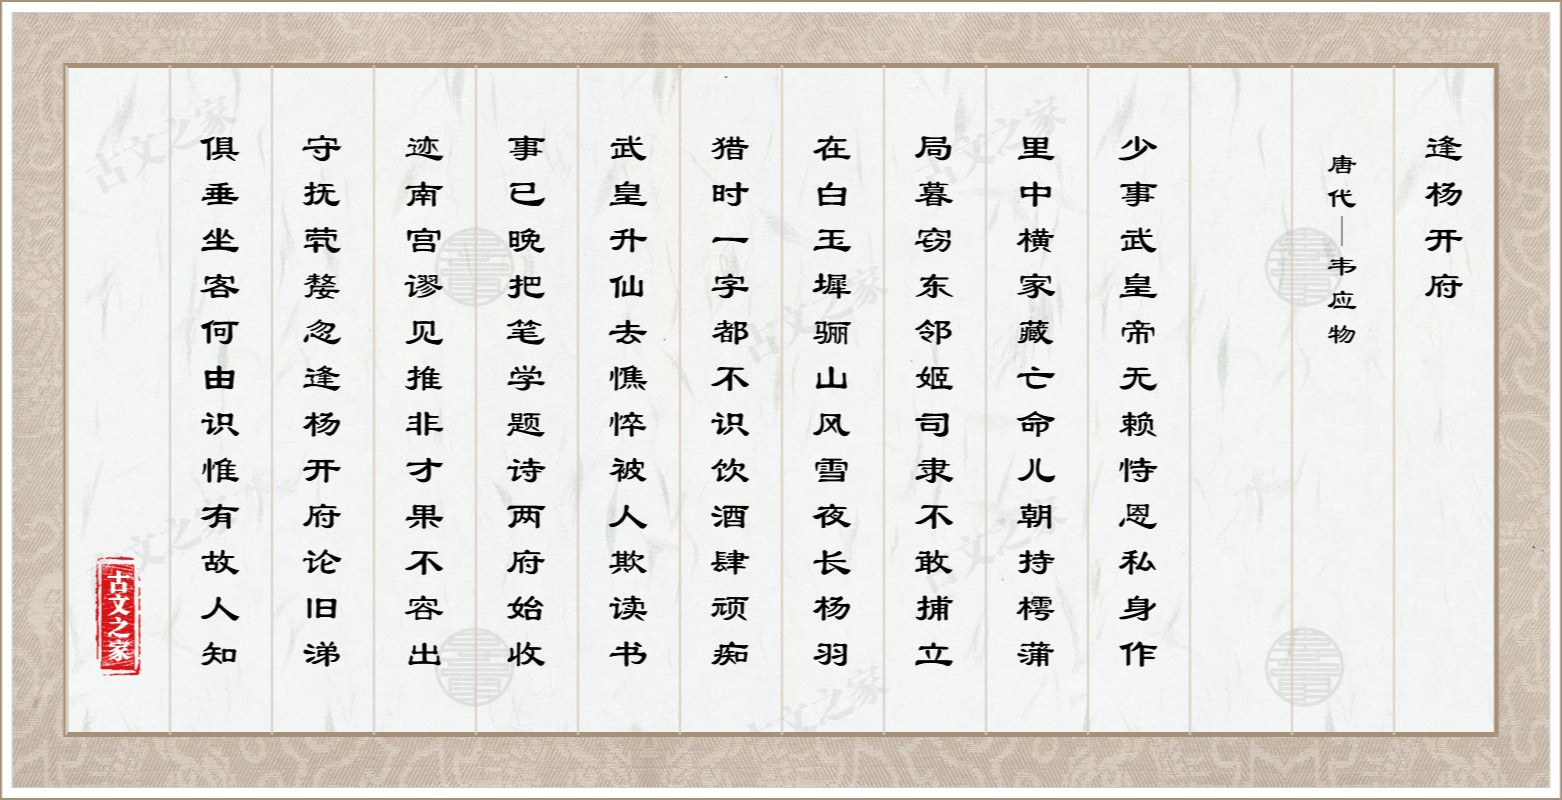 逢杨开府
唐代—韦应物
少事武皇帝无赖恃恩私身作
里中横家藏亡命儿朝持樗蒲
局暮窃东邻姬司隶不敢捕立
在白玉墀骊山风雪夜长杨羽
猎时一字都不识饮酒肆顽痴
武皇升仙去憔悴被人欺读书
事已晚把笔学题诗两府始收
迹南宫谬见推非才果不容出
守抚茕嫠忽逢杨开府论旧涕
俱垂坐客何由识惟有故人知
古文之家